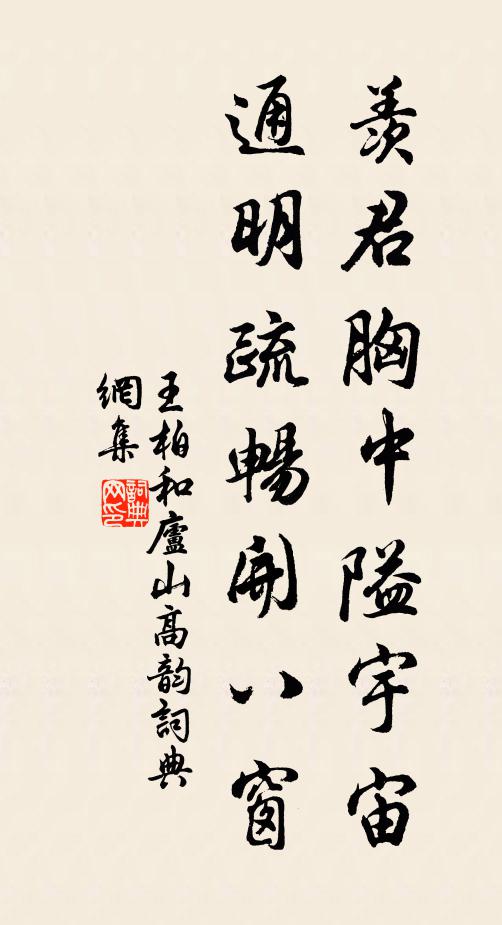 羨君胸中隘宇宙
通明疏暢開八窗
王柏和廬山高韵詞典
網集
詞典
网印